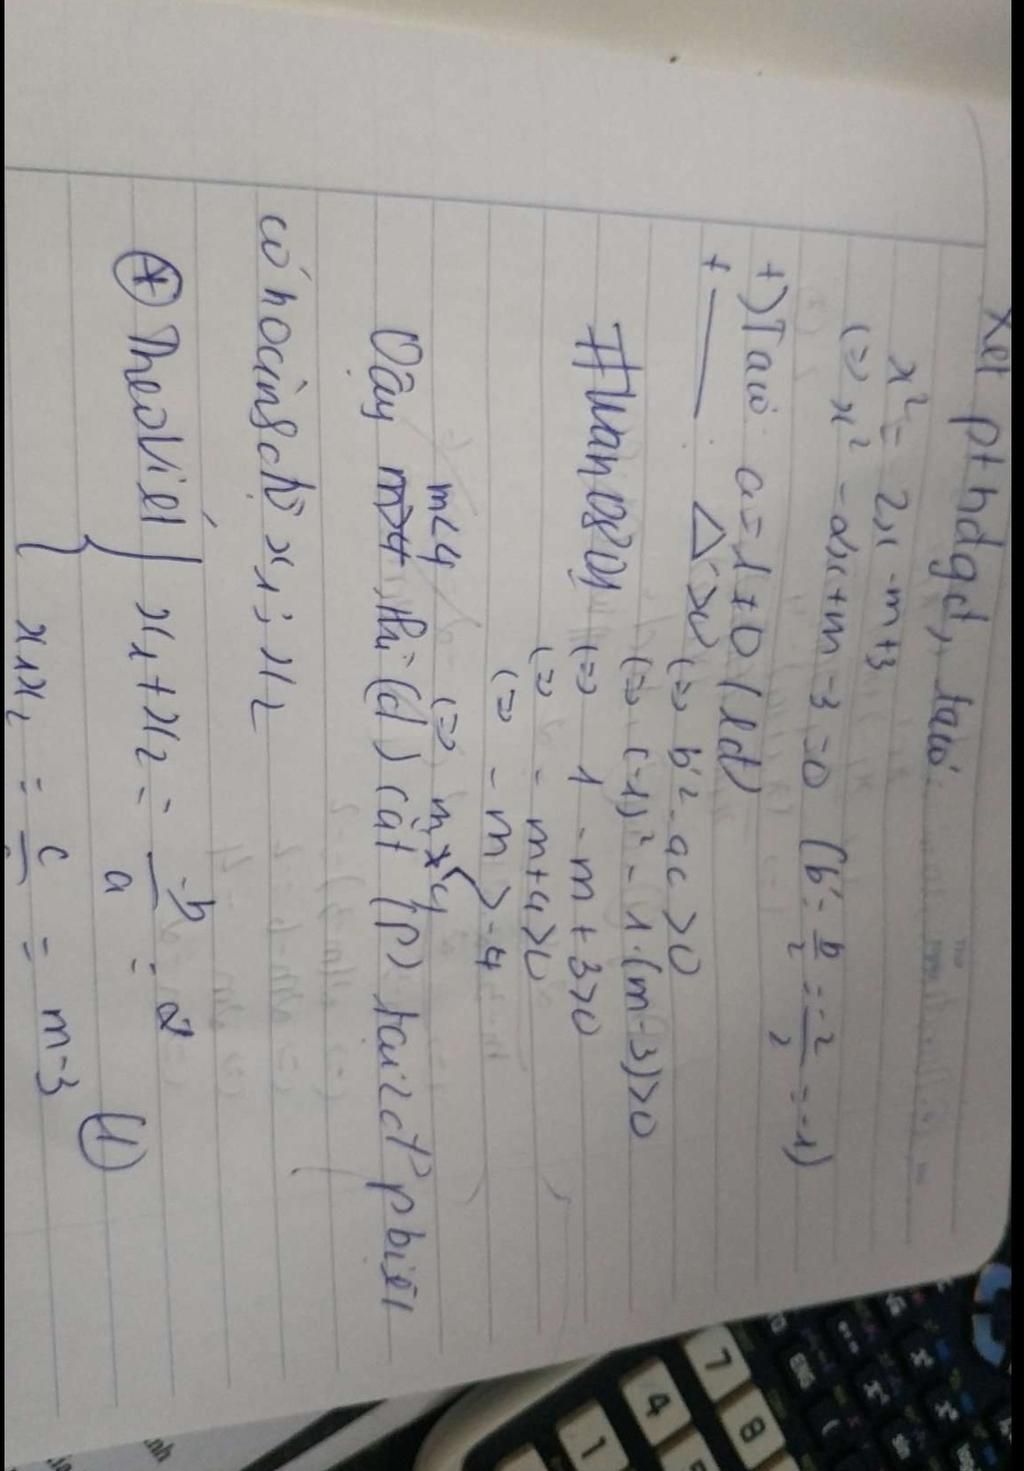 Xét pt hdgd, ta có:
x² = 2x - m+3
(=) x² - 2x + m - 3 = 0 (b' = b/2 = -2/2 = -1)
+) Ta có: a = 1 ≠ 0 (lđ)
+ Δ' > 0 (=) b'² - ac > 0
(=) (-1)² - 1.(m-3) > 0
#Wan0809 (=) 1 - m + 3 > 0
(=) - m + 4 > 0
(=) - m > -4
m<4 (=) m < 4
Vậy thì (d) cắt (P) tại 2 đ' pbiệt
có hoành độ x₁; x₂
(*) Theo Viét { x₁ + x₂ = -b/a = 2
x₁x₂ = c/a = m-3 (1)
7
8
4
1